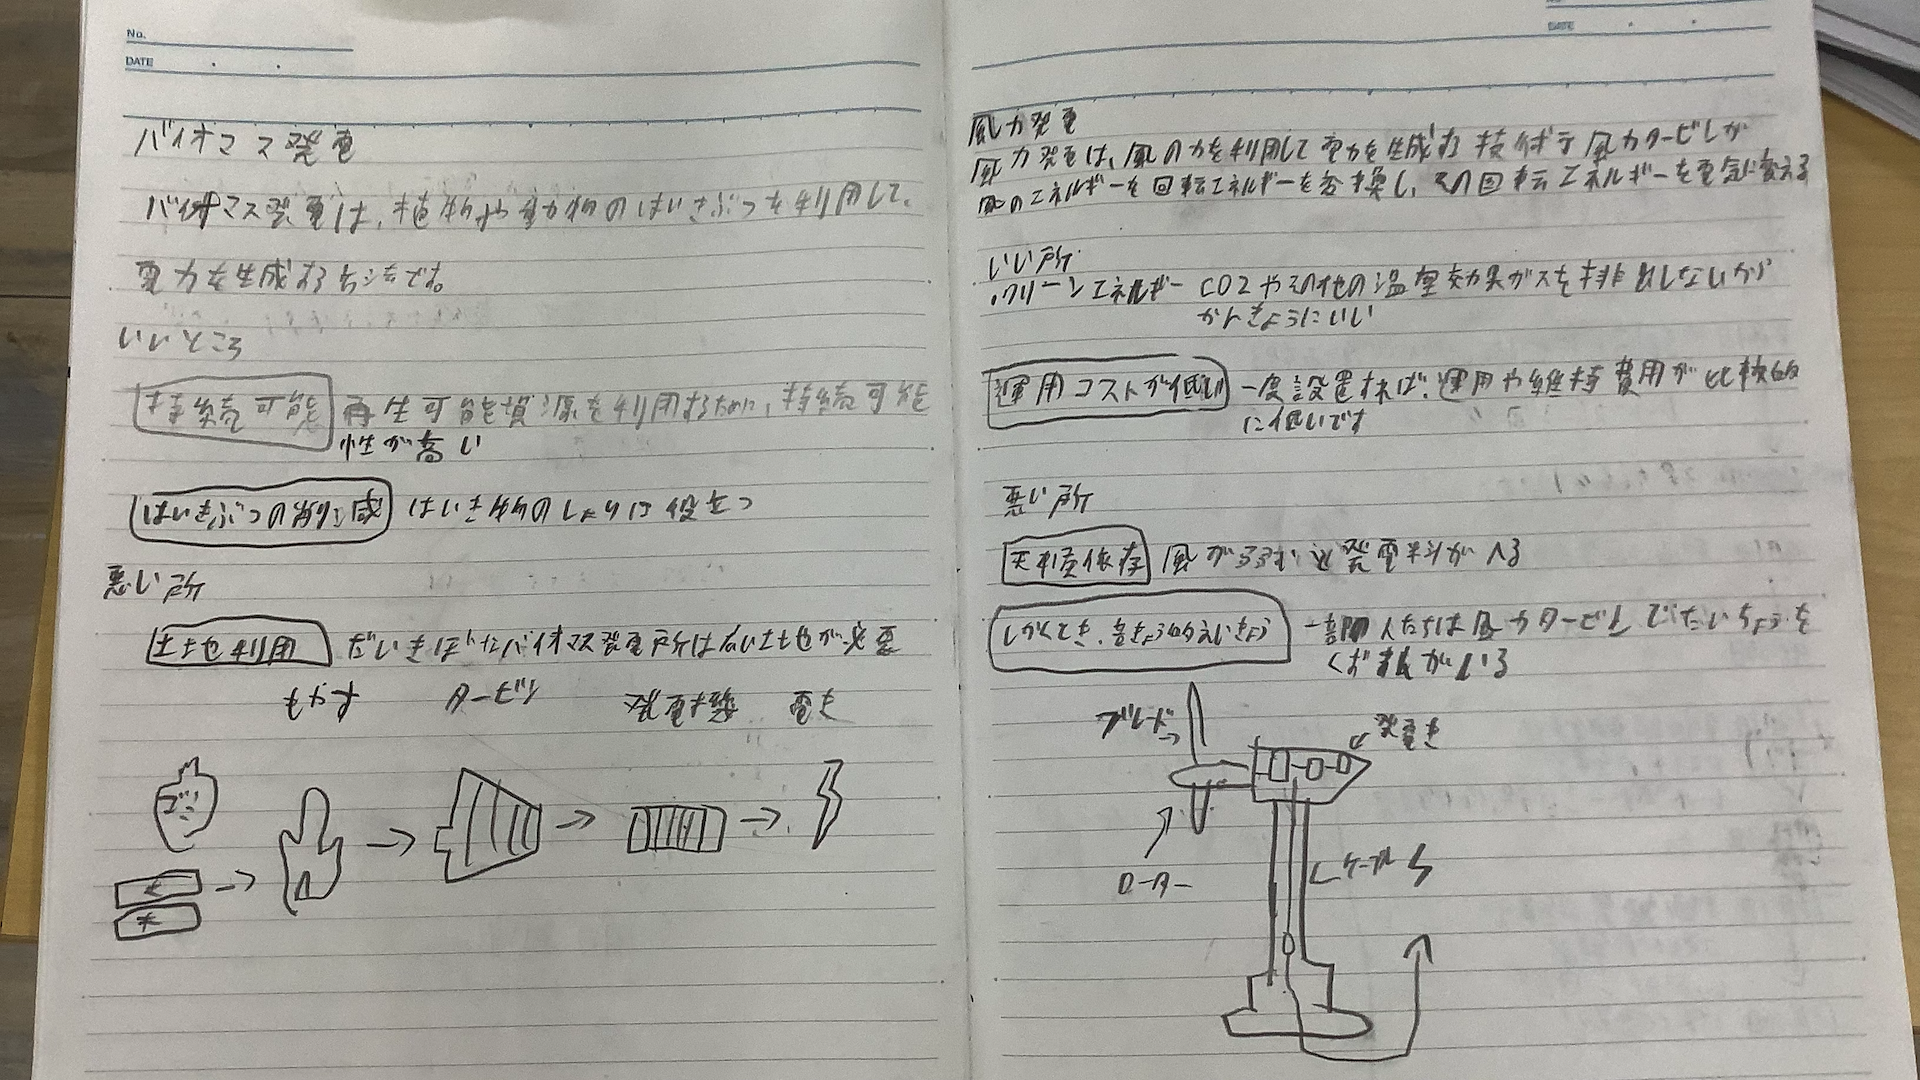 No.
DATE
バイオマス発電
バイオマス発電は、植物や動物のはいきぶつを利用して、
電力を生成する
いいところ
持続可能 再生可能資源を利用するために、持続可能
性が高い
はいきぶつの削減 はいき物のしょりに役立つ
悪い所
土地利用 だいきぼなバイオマス発電所は広い土地が必要
もやす タービン 発電機 電き
ゴミ
木
DATE
風力発電
風力発電は、風の力を利用して電力を生成する技術で風力タービンが
風のエネルギーを回転エネルギーを変換し、その回転エネルギーを電気に変える
いい所
・クリーンエネルギー CO2やその他の温室効果ガスを排出しないから
かんきょうにいい
運用コストが低い 一度設置すれば、運用や維持費用が比較的
に低いです
悪い所
天候依存 風が 発電料がへる
しかくてき、音きょう的えいきょう 一部の人たちは風力タービン
ブレード
発電き
ローター
ケーブル